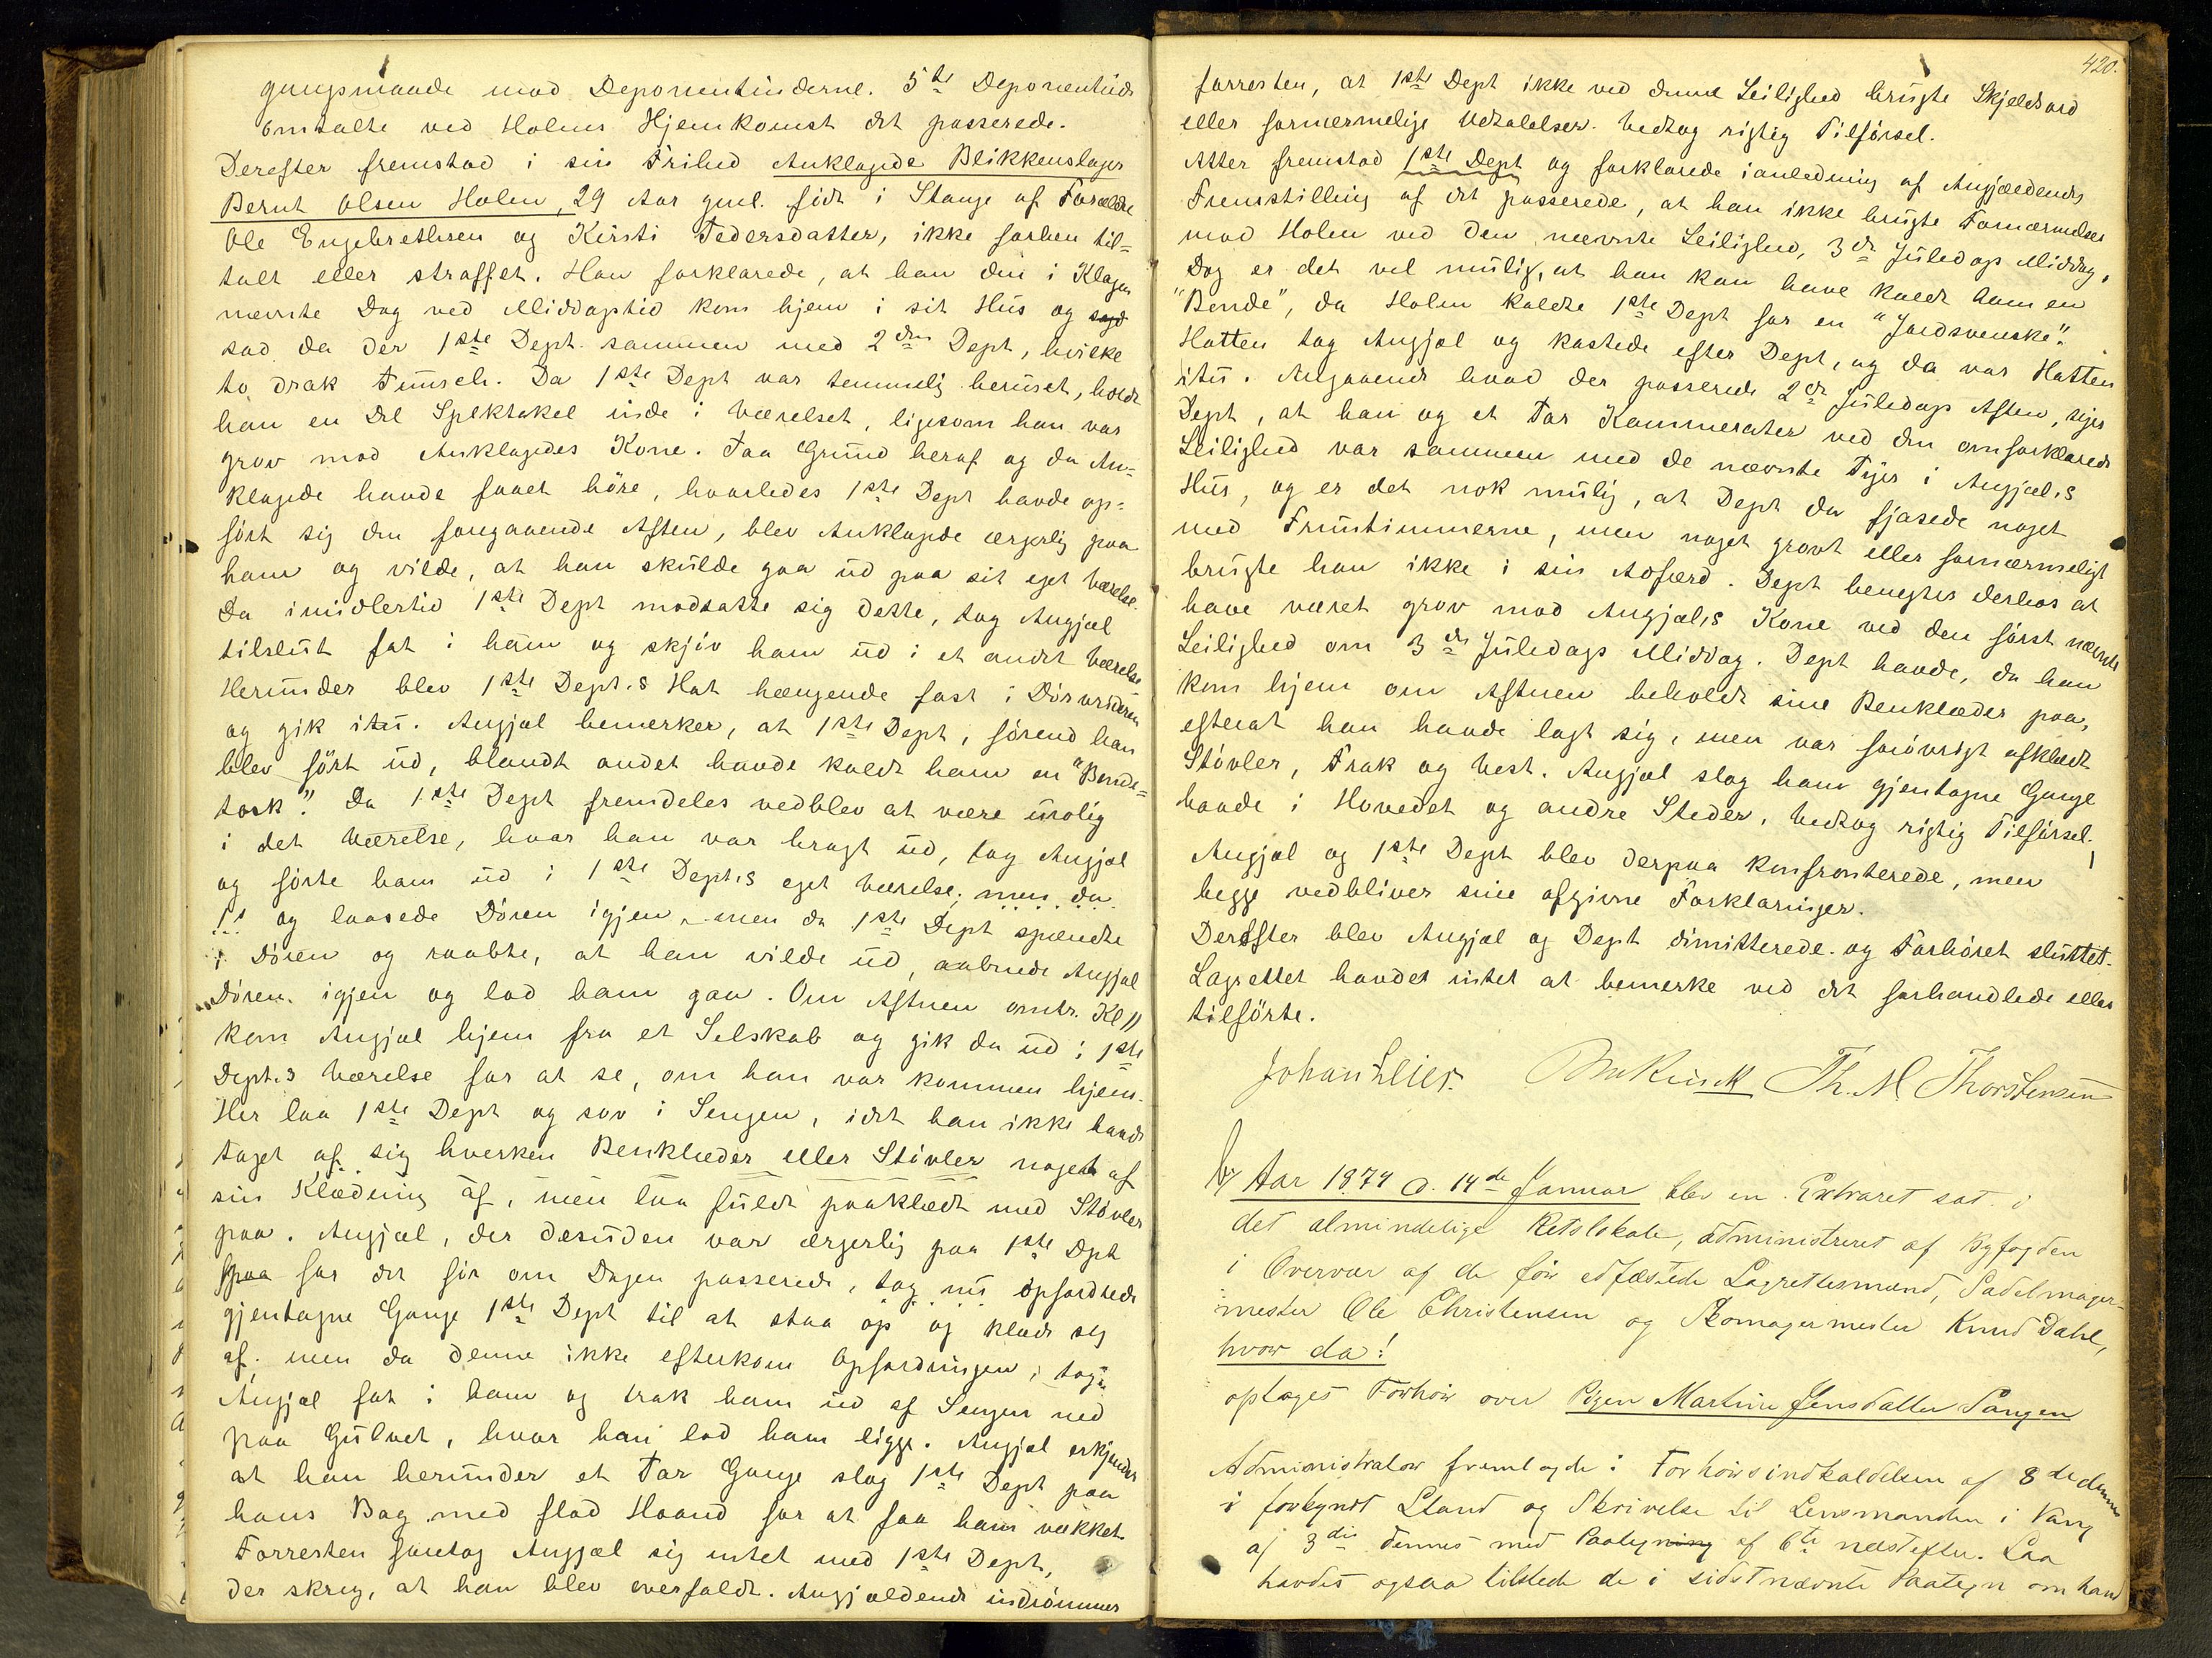 gangsmaade mod Deponentinderne. 5te Deponentinde
omtalte ved Holms Hjemkomst det passerede.
Derefter fremstod i sin Frihed Anklagede Blikkenslager
Bernt Olsen Holm, 29 Aar gml. født i Stange af Forældre
Ole Engebrethsen og Kirsti Pedersdatter, ikke forhen til=
talt eller straffet. Han forklarede, at han den i Klagen
nævnte Dag ved Middagstid kom hjem i sit Hus og
sad da der 1ste Dept. sammen med 2den Dept, hvilke
to drak Punsch. Da 1ste Dept var temmelig beruset, holdt
han en Del Spektakel inde i Værelset, ligesom han var
grov mod Anklagedes Kone. Paa Grund heraf og da An=
klagede havde faaet høre, hvorledes 1ste Dept havde op=
ført sig den foregaaende Aften, blev Anklagede ærgerlig paa
ham og vilde, at han skulde gaa ud paa sit eget Værelse.
Da imidlertid 1ste Dept modsatte sig dette, tog Angjæl
tilslut fat i ham og skjøv ham ud i et andet Værelse
Herunder blev 1ste Dept.s Hat hængende fast i Dørvrideren
og gik itu. Angjæl bemerker, at 1ste Dept, førend han
blev ført ud, blandt andet havde kaldt ham en "Bonde=
tosk". Da 1ste Dept fremdeles vedblev at være urolig
i det Værelse, hvor han var bragt ud, tog Angjæl
og førte ham ud i 1ste Dept.s eget Værelse, men da
1s og laasede Døren igjen, men da 1ste Dept spændte
i Døren og raabte, at han vilde ud, aabnede Angjæl
Døren igjen og lod ham gaa. Om Aftnen omtr. Kl 11
kom Angjæl hjem fra et Selskab og gik da ud i 1ste
Dept.s Værelse for at se, om han var kommen hjem.
Her laa 1ste Dept og sov i Sengen, idet han ikke havde
taget af sig hverken Benklæder eller Støvler noget af
sin Klædning af, men laa fuldt paaklædt med Støvler
paa. Angjæl, der desuden var ærgerlig paa 1ste Dpt
paa for det før om Dagen passerede, tog nu opfordrede
gjentagne Gange 1ste Dept til at staa op og klæde sig
af. men da denne ikke efterkom Opfordringen, tog
Angjæl fat i ham og trak ham ud af Sengen ned
paa Gulvet, hvor han lod ham ligge. Angjæl erkjender
at han herunder et Par Gange slog 1ste Dept paa
hans Bag med flad Haand for at faa ham vækket.
Forresten foretog Angjæl sig intet med 1ste Dept,
der skreg, at han blev overfaldt. Angjældende indrømmer
420.
forresten, at 1ste Dept ikke ved denne Leilighed brugte Skjeldsord
eller fornærmelige Udtalelser. Vedtog rigtig Tilførsel.
Atter fremstod 1ste Dept og forklarede ianledning af Angjældendes
Fremstilling af det passerede, at han ikke brugte Fornærmelser
mod Holm ved den nævnte Leilighed, 3die Juledags Middag,
Dog er det vel mulig, at han kan have kaldt ham en
"Bonde", da Holm kaldte 1ste Dept for en "Jordsvenske".
Hatten tog Angjæl og kastede efter Dept, og da var Hatten
itu. Angaaende hvad der passerede 2den Juledags Aften, siger
Dept, at han og et Par Kammerater ved den omforklarede
Leilighed var sammen med de nævnte Piger i Angjæl.s
Hus, og er det nok mulig, at Dept da fjasede noget
med Fruentimmerne, men noget grovt eller fornærmeligt
brugte han ikke i sin Adfærd. Dept benegter derhos at
have været grov mod Angjæl.s Kone ved den først nævnte
Leilighed om 3die Juledags Middag. Dept havde, da han
kom hjem om Aftnen beholdt sine Benklæder paa,
efterat han havde lagt sig, men var forøvrigt afklædt
Støvler, Frak og Vest. Angjæl slog ham gjentagne Gange
baade i Hovedet og andre Steder. Vedtog rigtig Tilførsel.
Angjæl og 1ste Dept blev derpaa konfronterede, men
begge vedbliver sine afgivne Forklaringer.
Derefter blev Angjæl og Dept dimitterede og Forhøret sluttet.
Lagrettet havdes intet at bemerke ved det forhandlede eller
tilførte.
Johan Lier. Th. M. Thorstensen
Aar 1874 d. 14de Januar blev en Extraret sat i
det almindelige Retslokale, administreret af Byfogden
i Overvær af de før edfæstede Lagrettesmænd, Sadelmager=
mester Ole Christensen og Skomagermester Knud Dahl,
hvor da:
optages Forhør over Pigen Martine Jensdatter Vangen
Administrator fremlagde: Forhørsindkaldelsen af 8de dennes
i forkyndt Stand og Skrivelse til Lensmanden i Vang
af 3die dennes med Paategning af 6te næstefter. Saa
havdes ogsaa tilstede de i sidstnævnte Paategn om hand